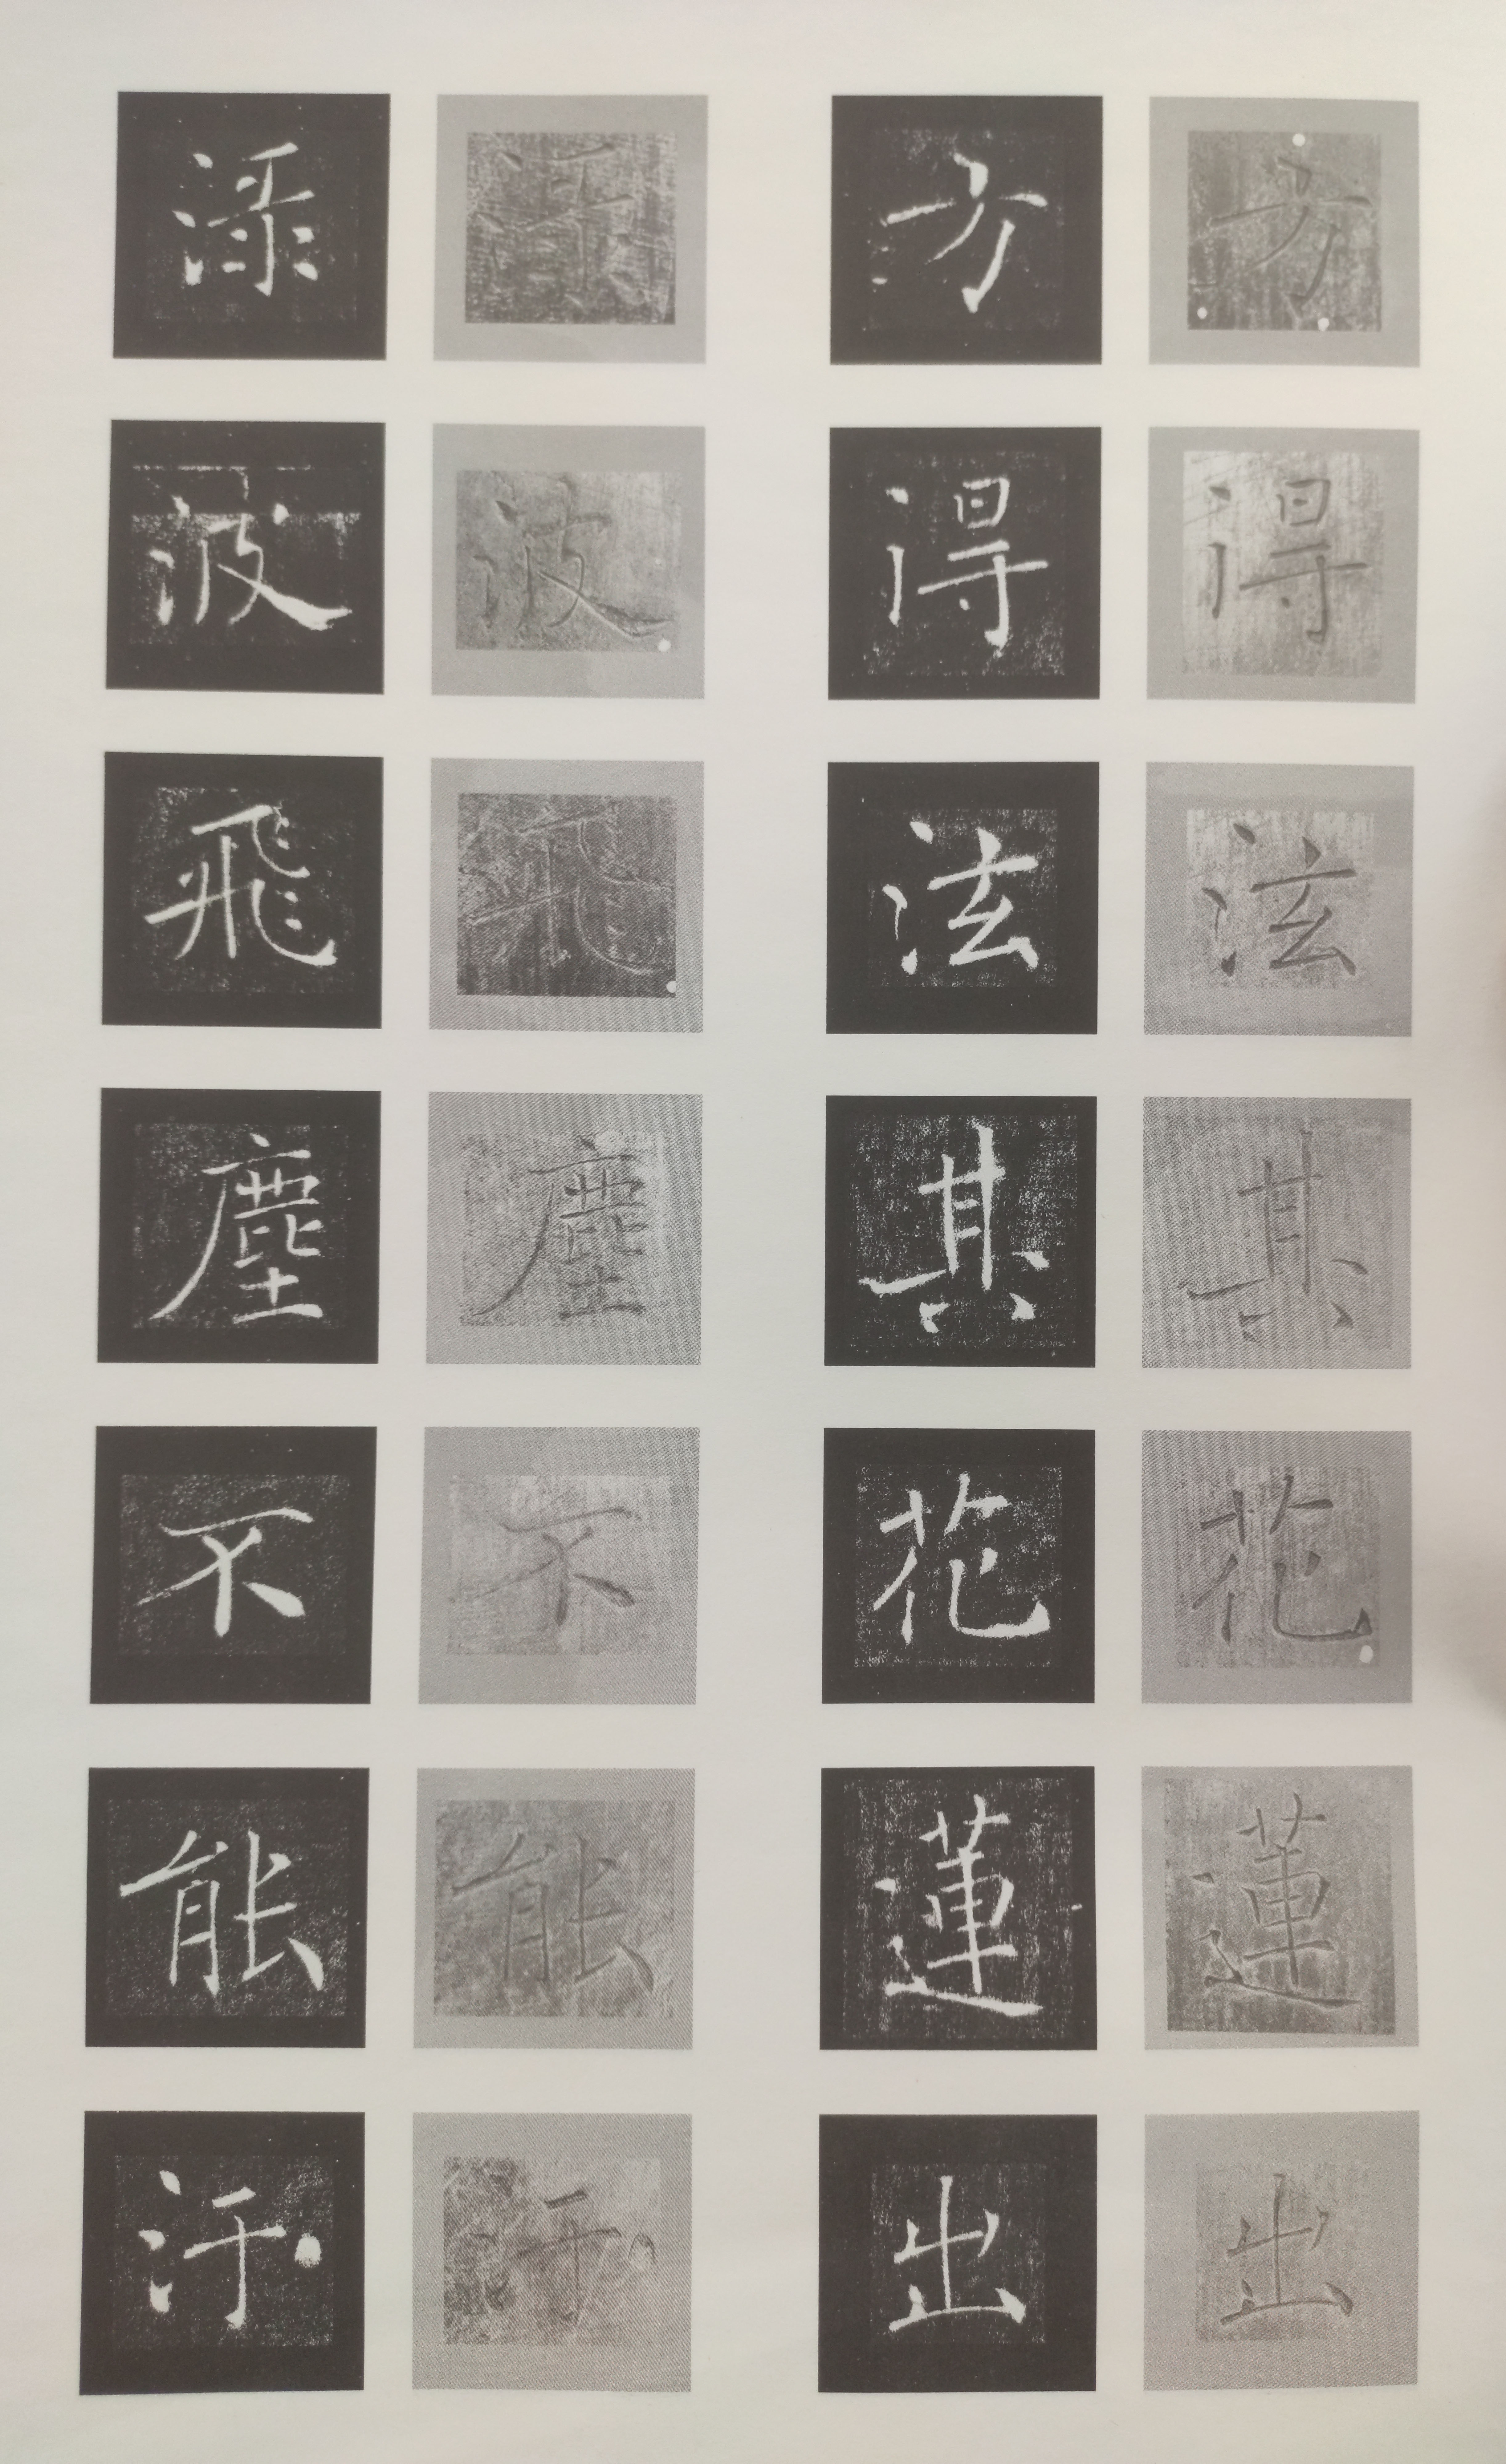 方得泫其花蓮出
方得泫其花蓮出
淥波飛塵不能汙
淥波飛塵不能汙